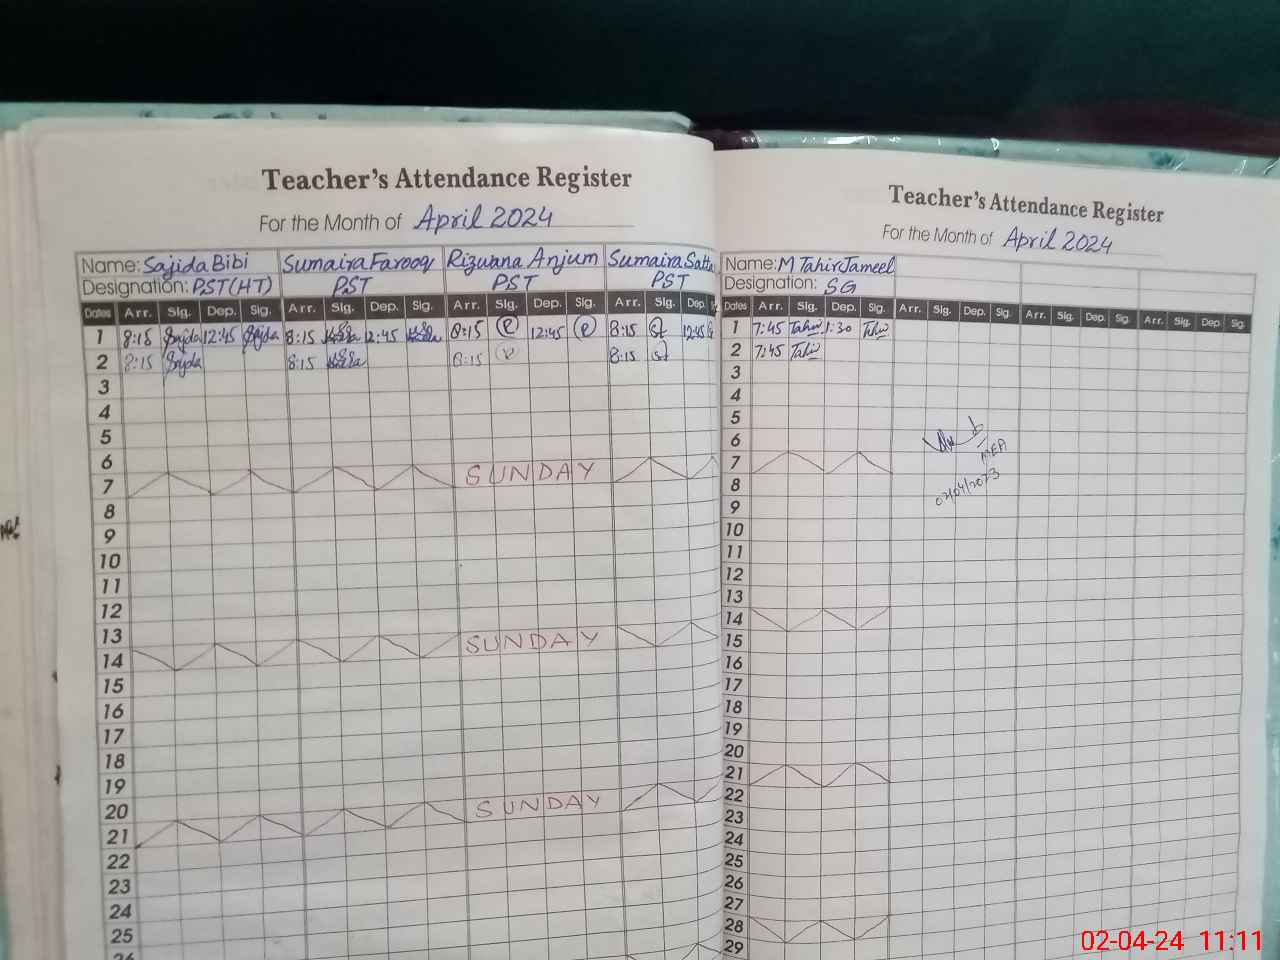 Teacher's Attendance Register
For the Month of April 2024
Name: Sajida Bibi Sumaira Farooq Rizwana Anjum Sumaira Satta
Designation: PST (HT) PST PST PST
Dates Arr. Sig. Dep. Sig. Arr. Sig. Dep. Sig. Arr. Sig. Dep. Sig. Arr. Sig. Dep.
1 8:15 Sajda 12:45 Sajda 8:15 12:45 8:15 R 12:45 R 8:15 12:45
2 8:15 Sajda 8:15 8:15 R 8:15
3
4
5
6
7 SUNDAY
8
9
10
11
12
13
14 SUNDAY
15
16
17
18
19
20
21 SUNDAY
22
23
24
25
26
Teacher's Attendance Register
For the Month of April 2024
Name: M Tahir Jameel
Designation: SG
Dates Arr. Sig. Dep. Sig. Arr. Sig. Dep. Sig. Arr. Sig. Dep. Sig. Arr. Sig. Dep Sig.
1 7:45 Tahir 1:30 Tahir
2 7:45 Tahir
3
4
5
6
7
8
9
10
11
12
13
14
15
16
17
18
19
20
21
22
23
24
25
26
27
28
29
MEA
02/04/2023
02-04-24 11:11